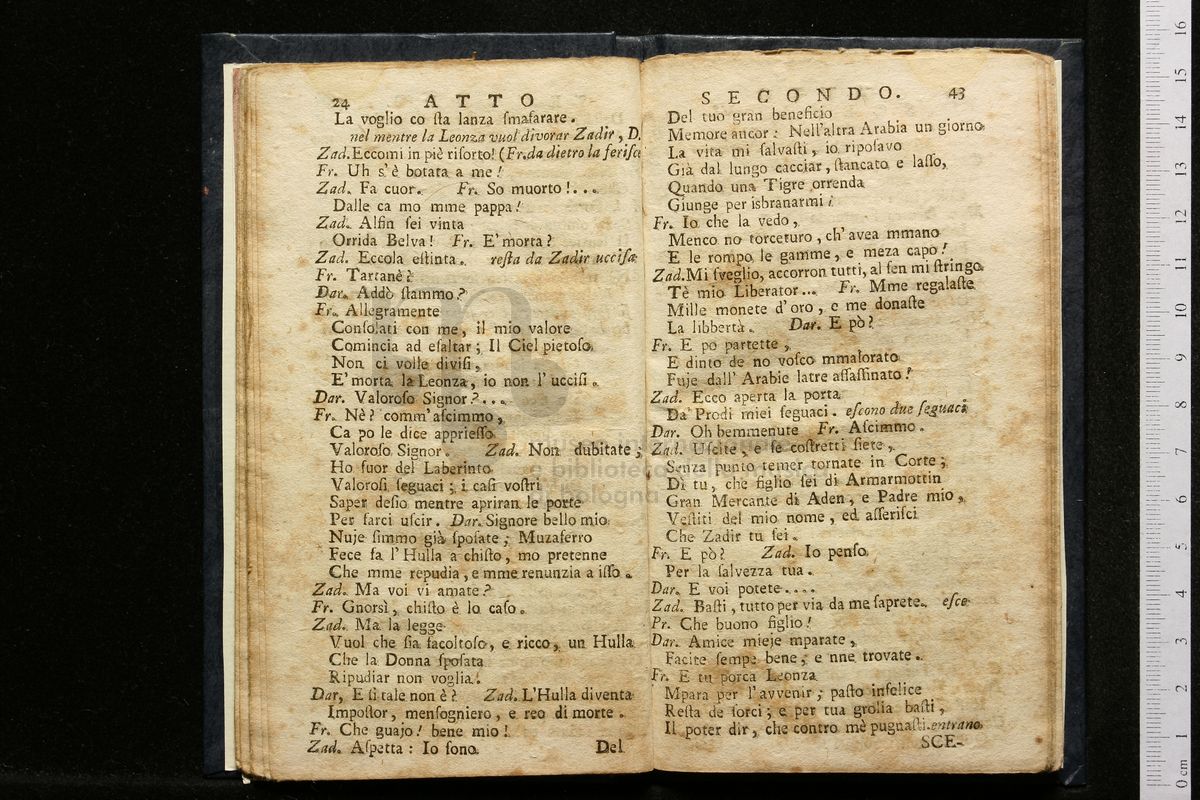 24 ATTO
La voglio co sta lanza smafarare.
nel mentre la Leonza vuol divorar Zadir, D.
Zad. Eccomi in piè risorto! (Fr. da dietro la ferisce
Fr. Uh s'è botata a me!
Zad. Fa cuor. Fr. So muorto!...
Dalle ca mo mme pappa!
Zad. Alfin sei vinta
Orrida Belva! Fr. E' morta?
Zad. Eccola estinta. resta da Zadir uccisa
Fr. Tartanè?
Dar. Addò stammo?
Fr. Allegramente
Consolati con me, il mio valore
Comincia ad esaltar; Il Ciel pietoso
Non ci volle divisi,
E' morta la Leonza, io non l' uccisi.
Dar. Valoroso Signor?...
Fr. Nè? comm' ascimmo,
Ca po le dice appriesso
Valoroso Signor. Zad. Non dubitate;
Ho fuor del Laberinto
Valorosi seguaci; i casi vostri
Saper desio mentre apriran le porte
Per farci uscir. Dar. Signore bello mio
Nuje simmo già sposate; Muzaferro
Fece fa l' Hulla a chisto, mo pretenne
Che mme repudia, e mme renunzia a isso.
Zad. Ma voi vi amate?
Fr. Gnorsì, chisto è lo caso.
Zad. Ma la legge
Vuol che sia facoltoso, e ricco, un Hulla
Che la Donna sposata
Ripudiar non voglia.
Dar, E si tale non è? Zad. L'Hulla diventa
Impostor, mensogniero, e reo di morte.
Fr. Che guajo! bene mio!
Zad. Aspetta: Io sono
Del
SECONDO. 43
Del tuo gran beneficio
Memore ancor: Nell'altra Arabia un giorno
La vita mi salvasti, io riposavo
Già dal lungo cacciar, stancato e lasso,
Quando una Tigre orrenda
Giunge per isbranarmi;
Fr. Io che la vedo,
Menco no torceturo, ch' avea mmano
E le rompo le gamme, e meza capo!
Zad. Mi sveglio, accorron tutti, al sen mi stringo
Tè mio Liberator... Fr. Mme regalaste
Mille monete d' oro, e me donaste
La libbertà. Dar. E pò?
Fr. E po partette,
E dinto de no vosco mmalorato
Fuje dall' Arabie latre assassinato!
Zad. Ecco aperta la porta
Da' Prodi miei seguaci. escono due seguaci
Dar. Oh bemmenute Fr. Ascimmo.
Zad. Uscite, e se costretti siete,
Senza punto temer tornate in Corte;
Di tu, che figlio sei di Armarmottin
Gran Mercante di Aden, e Padre mio,
Vestiti del mio nome, ed asserisci
Che Zadir tu sei.
Fr. E pò? Zad. Io penso
Per la salvezza tua.
Dar. E voi potete....
Zad. Basti, tutto per via da me saprete. esce
Pr. Che buono figlio!
Dar. Amice mieje mparate,
Facite sempe bene, e nne trovate.
Fr. E tu porca Leonza
Mpara per l'avvenir; pasto infelice
Resta de sorci; e per tua grolia basti,
Il poter dir, che contro mè pugnasti. entrano
SCE-